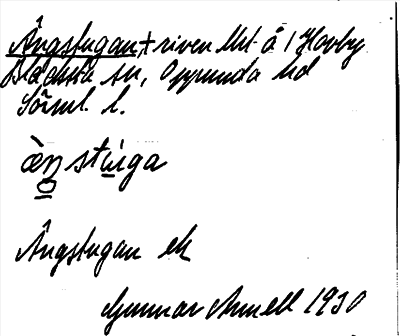 Ängstugan + riven lht å / Hovby
Blacksta sn, Oppunda hd
Söml. l.
ängstuga
Ängstugan ek
Gunnar Amell 1930